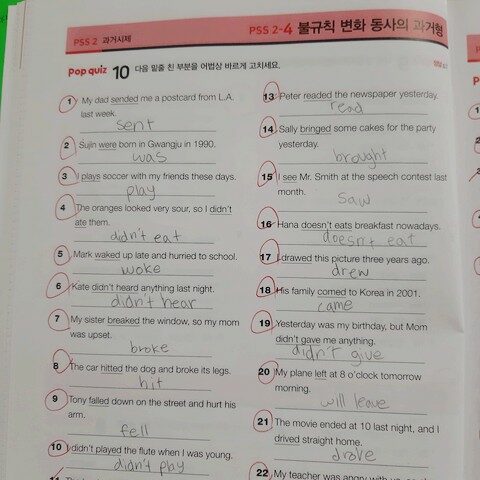 PSS 2 과거시제
PSS 2-4 불규칙 변화 동사의 과거형
Pop quiz 10 다음 밑줄 친 부분을 어법상 바르게 고치세요.
1 My dad sended me a postcard from L.A.
last week.
sent
2 Sujin were born in Gwangju in 1990.
was
3 I plays soccer with my friends these days.
play
4 The oranges looked very sour, so I didn't
ate them.
didn't eat
5 Mark waked up late and hurried to school.
woke
6 Kate didn't heard anything last night.
didn't hear
7 My sister breaked the window, so my mom
was upset.
broke
8 The car hitted the dog and broke its legs.
hit
9 Tony falled down on the street and hurt his
arm.
fell
10 I didn't played the flute when I was young.
didn't play
13 Peter readed the newspaper yesterday.
read
14 Sally bringed some cakes for the party
yesterday.
brought
15 I see Mr. Smith at the speech contest last
month.
saw
16 Hana doesn't eats breakfast nowadays.
doesn't eat
17 I drawed this picture three years ago.
drew
18 His family comed to Korea in 2001.
came
19 Yesterday was my birthday, but Mom
didn't gave me anything.
didn't give
20 My plane left at 8 o'clock tomorrow
morning.
will leave
21 The movie ended at 10 last night, and I
drived straight home.
drove
22 My teacher was angry with